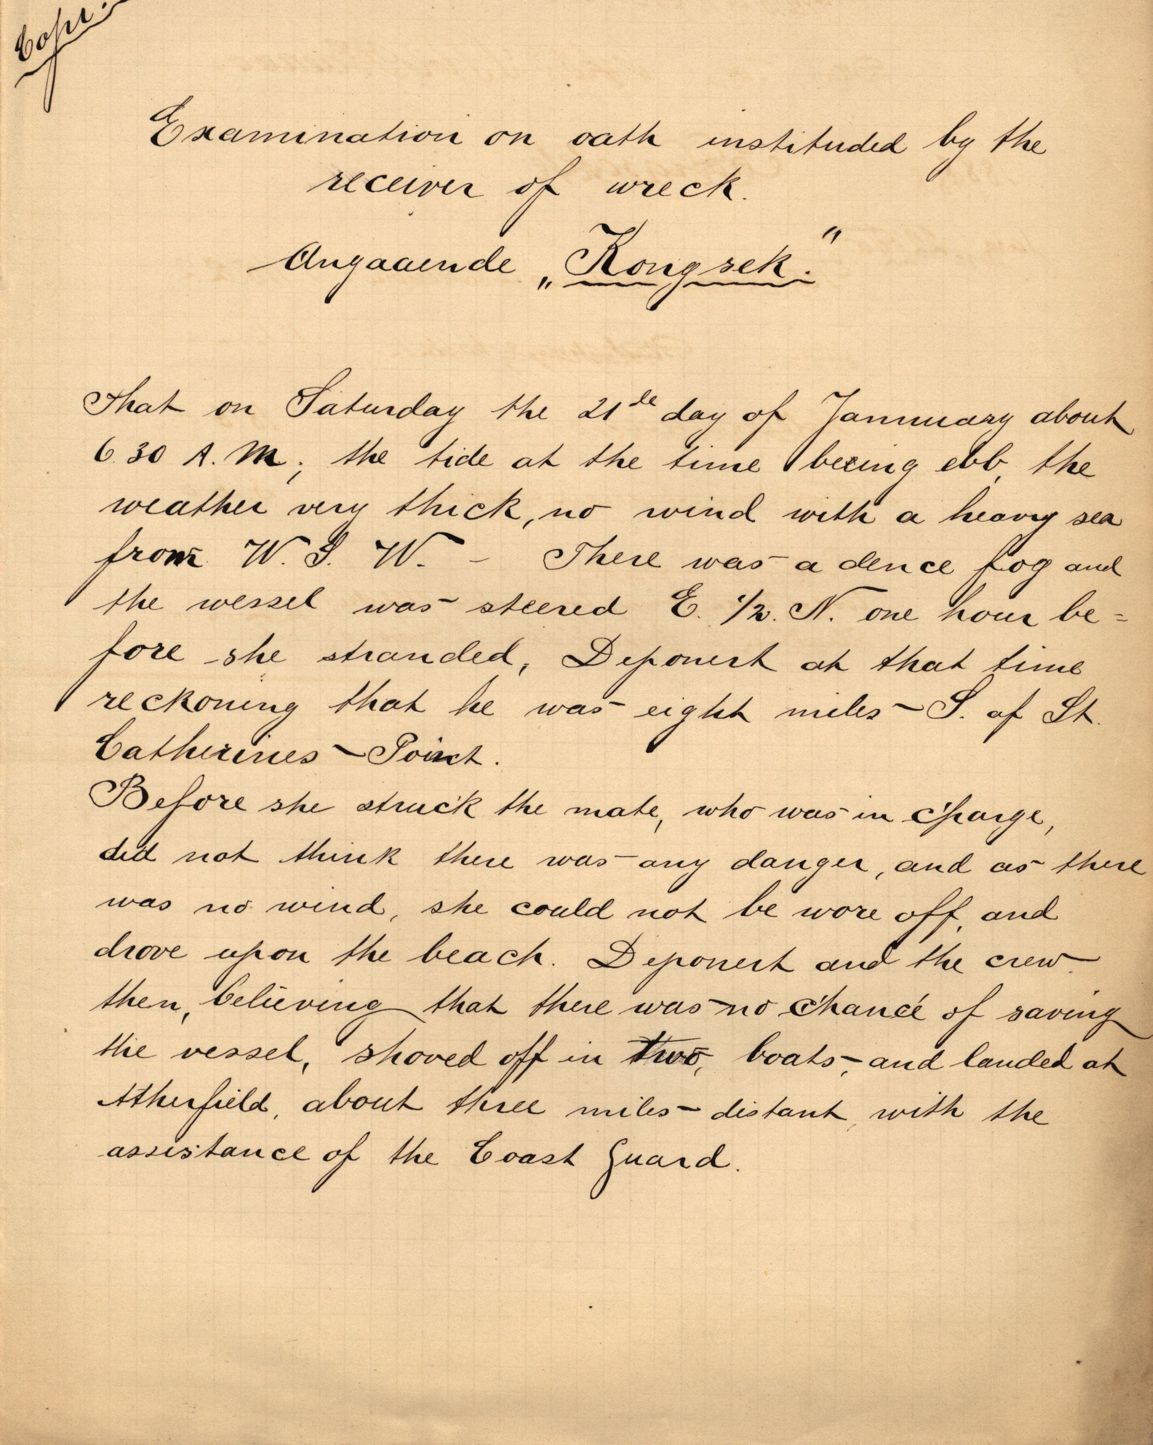 Copi.
Examination on oath instituded by the
receiver of wreck.
Angaaende „Kongsek."
That on Saturday the 21de day of Jannuary about
6.30 A.M; the tide at the time beeing ebb, the
weather very thick, no wind with a heavy sea
from W. S. W. – There was a dence fog and
the wessel was steered E. 1/2. N. one hour be=
fore she stranded, Deponent at that time
reckoning that he was eight miles S. of St.
Catherines Point.
Before she struck the mate, who was in charge,
did not think there was any danger, and as there
was no wind, she could not be wore off, and
drove upon the beach. Deponent and the crew
then, believing that there was no chance of saving
the vessel, shoved off in two, boats, and landed at
Atherfield, about three miles distant, with the
assistance of the Coast Guard.